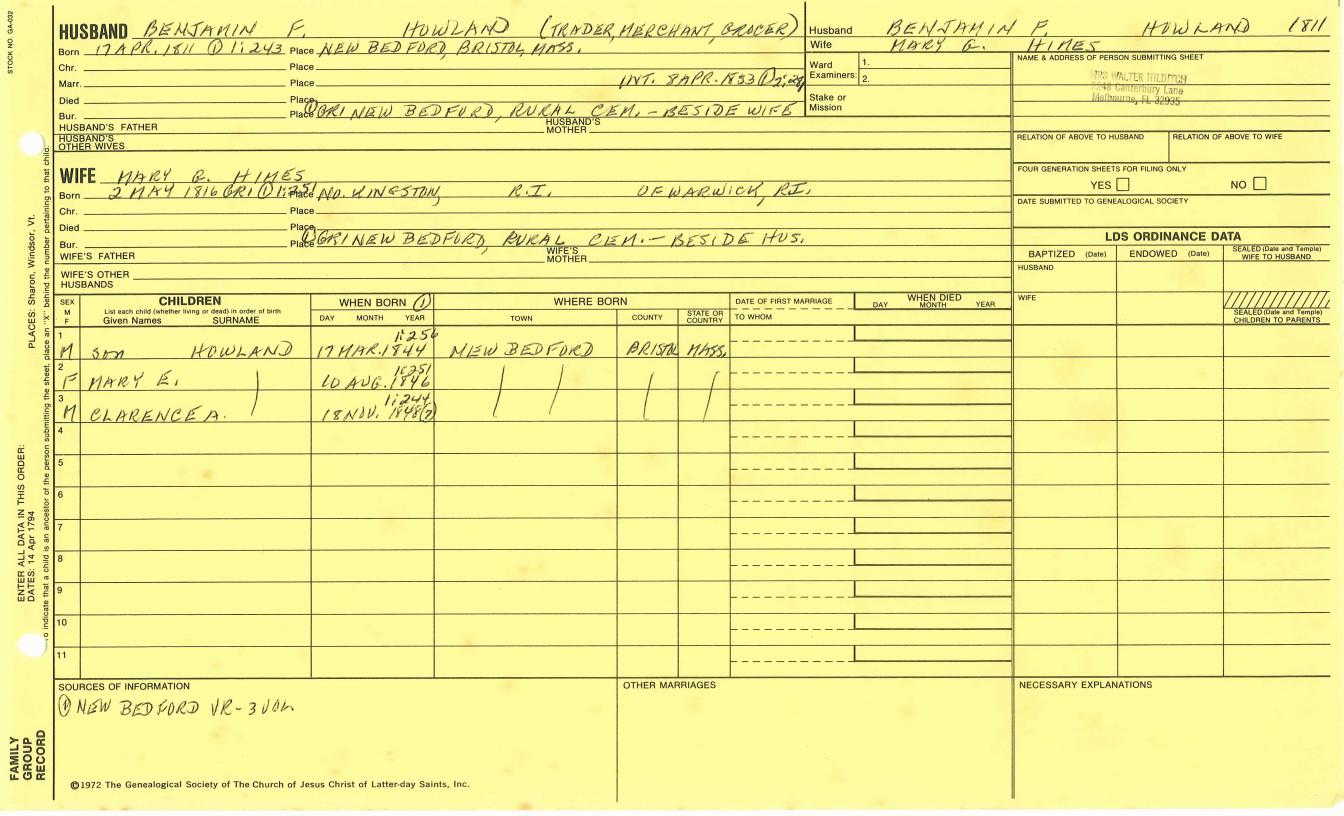 STOCK NO. GA-032
HUSBAND BENJAMIN F. HOWLAND (TRADER, MERCHANT, GROCER)
Born 17 APR. 1811 ① 1:243 Place NEW BEDFORD, BRISTOL, MASS.
Chr. Place
Marr. Place INT. 8 APR. 1853 ① 2:
Died Place
Bur. Place ① GR1 NEW BEDFORD, RURAL CEM. - BESIDE WIFE
HUSBAND'S FATHER HUSBAND'S MOTHER
HUSBAND'S OTHER WIVES
Husband BENJAMIN F. HOWLAND 1811
Wife MARY G. HIMES
Ward Examiners: 1.
2.
Stake or Mission
NAME & ADDRESS OF PERSON SUBMITTING SHEET
MRS WALTER HILDITCH
Canterbury Lane
Melbourne, FL 32935
RELATION OF ABOVE TO HUSBAND RELATION OF ABOVE TO WIFE
FOUR GENERATION SHEETS FOR FILING ONLY
YES NO
DATE SUBMITTED TO GENEALOGICAL SOCIETY
WIFE MARY G. HIMES
Born 2 MAY 1816 GR1 ① 1:251 Place NO. KINGSTON, R.I. OF WARWICK, R.I.
Chr. Place
Died Place
Bur. Place ① GR1 NEW BEDFORD, RURAL CEM. - BESIDE HUS.
WIFE'S FATHER WIFE'S MOTHER
WIFE'S OTHER HUSBANDS
LDS ORDINANCE DATA
BAPTIZED (Date) ENDOWED (Date) SEALED (Date and Temple) WIFE TO HUSBAND
HUSBAND
WIFE
SEALED (Date and Temple) CHILDREN TO PARENTS
SEX M F CHILDREN WHEN BORN ① WHERE BORN DATE OF FIRST MARRIAGE WHEN DIED
List each child (whether living or dead) in order of birth
Given Names SURNAME DAY MONTH YEAR TOWN COUNTY STATE OR COUNTRY TO WHOM DAY MONTH YEAR
1 M son HOWLAND 17 MAR. 1844 1:256 NEW BEDFORD BRISTOL MASS.
2 F MARY E. 10 AUG. 1846 1:251
3 M CLARENCE A. 18 NOV. 1848(7) 1:244
4
5
6
7
8
9
10
11
SOURCES OF INFORMATION
① NEW BEDFORD VR - 3 VOL.
OTHER MARRIAGES
NECESSARY EXPLANATIONS
©1972 The Genealogical Society of The Church of Jesus Christ of Latter-day Saints, Inc.
FAMILY GROUP RECORD
ENTER ALL DATA IN THIS ORDER:
DATES: 14 Apr 1794
PLACES: Sharon, Windsor, Vt.
o indicate that a child is an ancestor of the person submitting the sheet, place an "X" behind the number pertaining to that child.